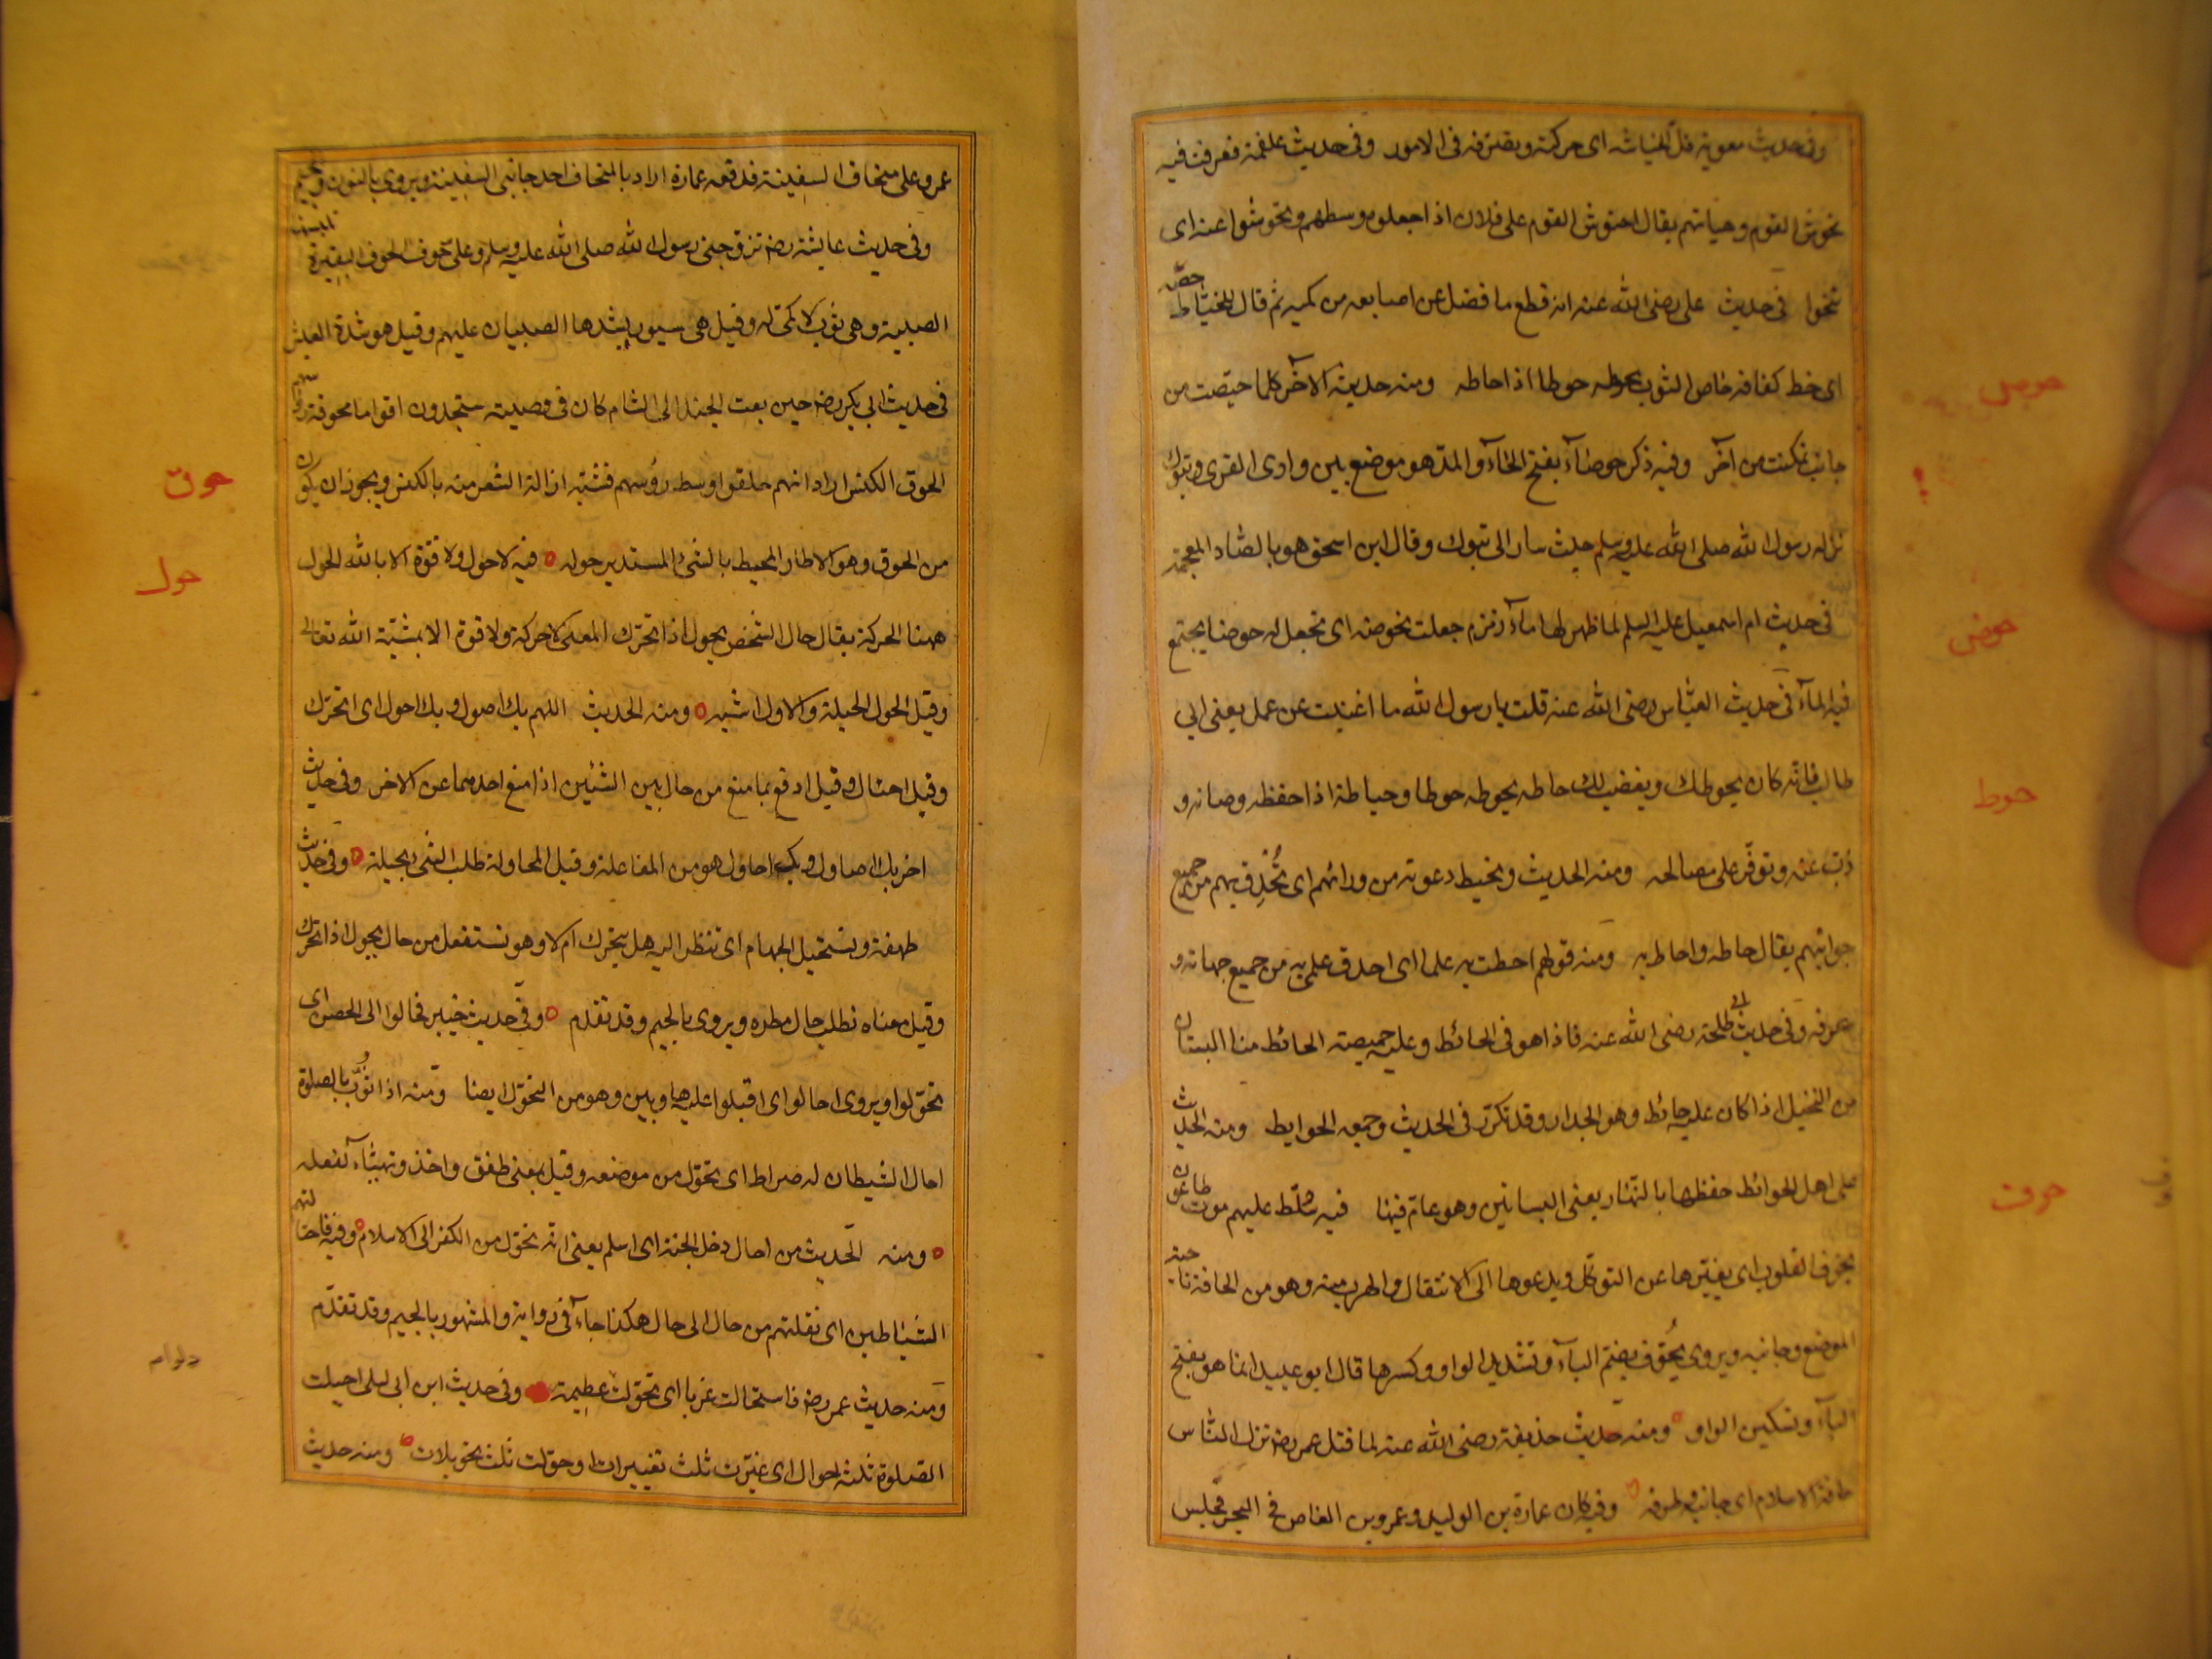 وفى حديث معوية قل انحياشه اى حركته وتصرفه فى الامور وفى حديث علقمة فعرفت فيه
تحوش القوم وهيأتهم يقال احتوش القوم على فلان اذا جعلوه وسطهم وتحوشوا عنه اى
تنحوا فى حديث على رضى الله عنه انه قطع ما فضل عن اصابعه من كميه ثم قال للخياط حصه
اى خط كفافه حاص الثوب يحوطه حوطا اذا حاطه ومنه حديثه الآخر كلما حيصت من
جانب تهكنت من آخر وفيه ذكر حوضآء بفتح الحآء والمد هو موضع بين وادى القرى وتبوك
نزله رسول الله صلى الله عليه وسلم حيث سار الى تبوك وقال ابن اسحق هو بالضاد المعجمة
فى حديث ام اسمعيل عليه السلم لما ظهر لها مآء زمزم جعلت تحوضه اى تجعل له حوضا يجتمع
فيه المآء فى حديث العباس رضى الله عنه قلت يا رسول الله ما اغنيت عن عمك يعنى ابى
طالب فانه كان يحوطك ويغضب لك حاطه يحوطه حوطا وحياطة اذا حفظه وصانه و
ذب عنه وتوفر على مصالحه ومنه الحديث وتحيط دعوته من ورائهم اى تحدق بهم من جميع
جوانبهم يقال حاطه واحاط به ومنه قولهم احطت به علما اى احدق علمى به من جميع جهاته و
عرفه وفى حديث ابى طلحة رضى الله عنه فاذا هو فى الحائط وعليه خميصة الحائط هنا البستان
من النخيل اذا كان عليه حائط وهو الجدار وقد تكرر فى الحديث وجمعه الحوايط ومنه الحديث
على اهل الحوائط حفظها بالنهار يعنى البساتين وهو عام فيها فيه سلط عليهم موت طاعون
يحوف القلوب اى يغيرها عن التوكل ويدعوها الى الانتقال والهرب منه وهو من الحافة ناحية
الموضع وجانبه ويروى يحوف بضم اليآء وتشديد الواو وكسرها قال ابو عبيد انما هو بفتح
اليآء وتسكين الواو ومنه حديث حذيفة رضى الله عنه لما قتل عمر رضه نزل الناس
حافة الاسلام اى جانبه وطرفه وفيه كان عمارة بن الوليد وعمرو بن العاص فى البحر فجلس
حوص
حوض
حوط
حوف
عمرو على منحاف السفينة فدفعه عمارة اراد بالمنحاف احد جانبى السفينة ويروى بالنون والجيم
وفى حديث عايشة رضه تزوجنى رسول الله صلى الله عليه وسلم وعلى حوف الحوف البقيرة تلبسها
الصبية وهى ثوب لا كمى له وقيل هى سيور يشدها الصبيان عليهم وقيل هو شدة العيش
فى حديث ابى بكر رضه حين بعث الجند الى الشام كان فى وصيته ستجدون اقواما محوقة رؤسهم
الحوق الكنس اراد انهم حلقوا وسط رؤسهم فشبه ازالة الشعر منه بالكنس ويجوز ان يكون
من الحوق وهو الاطار المحيط بالشئ المستدير حوله فيه لا حول ولا قوة الا بالله الحول
ههنا الحركة يقال حال الشخص يحول اذا تحرك المعنى لا حركة ولا قوة الا بمشية الله تعالى
وقيل الحول الحيلة والاول اشبه ومنه الحديث اللهم بك اصول وبك احول اى اتحرك
وقيل احتال وقيل ادفع بما منع من حال بين الشيئين اذا منع احدهما عن الآخر وفى حديث
اخر بك اصاول وبك احاول هو من المفاعلة وقيل المحاولة طلب الشئ بحيلة وفى حديث
طهفة ونستحيل الجهام اى ننظر اليه هل يتحرك ام لا وهو نستفعل من حال يحول اذا تحرك
وقيل معناه نطلب حال مطره ويروى بالجيم وقد تقدم وفى حديث خيبر فحالوا الى الحصن اى
تحولوا ويروى احالوا اى اقبلوا عليه هاربين وهو من التحول ايضا ومنه اذا ثوب بالصلوة
احال الشيطان له ضراط اى تحول من موضعه وقيل بمعنى طفق واخذ وتهيأ لفعله
ومنه الحديث من احال دخل الجنة اى اسلم يعنى انه تحول من الكفر الى الاسلام وفيه فاحتالتهم
الشياطين اى نقلتهم من حال الى حال هكذا جاء فى رواية والمشهور بالجيم وقد تقدم
ومنه حديث عمر رضه فاستحالت غربا اى تحولت عظيمة وفى حديث ابن ابى ليلى احيلت
الصلوة ثلثة احوال اى غيرت ثلث تغييرات او حولت ثلث تحويلات ومنه حديث
حوق
حول